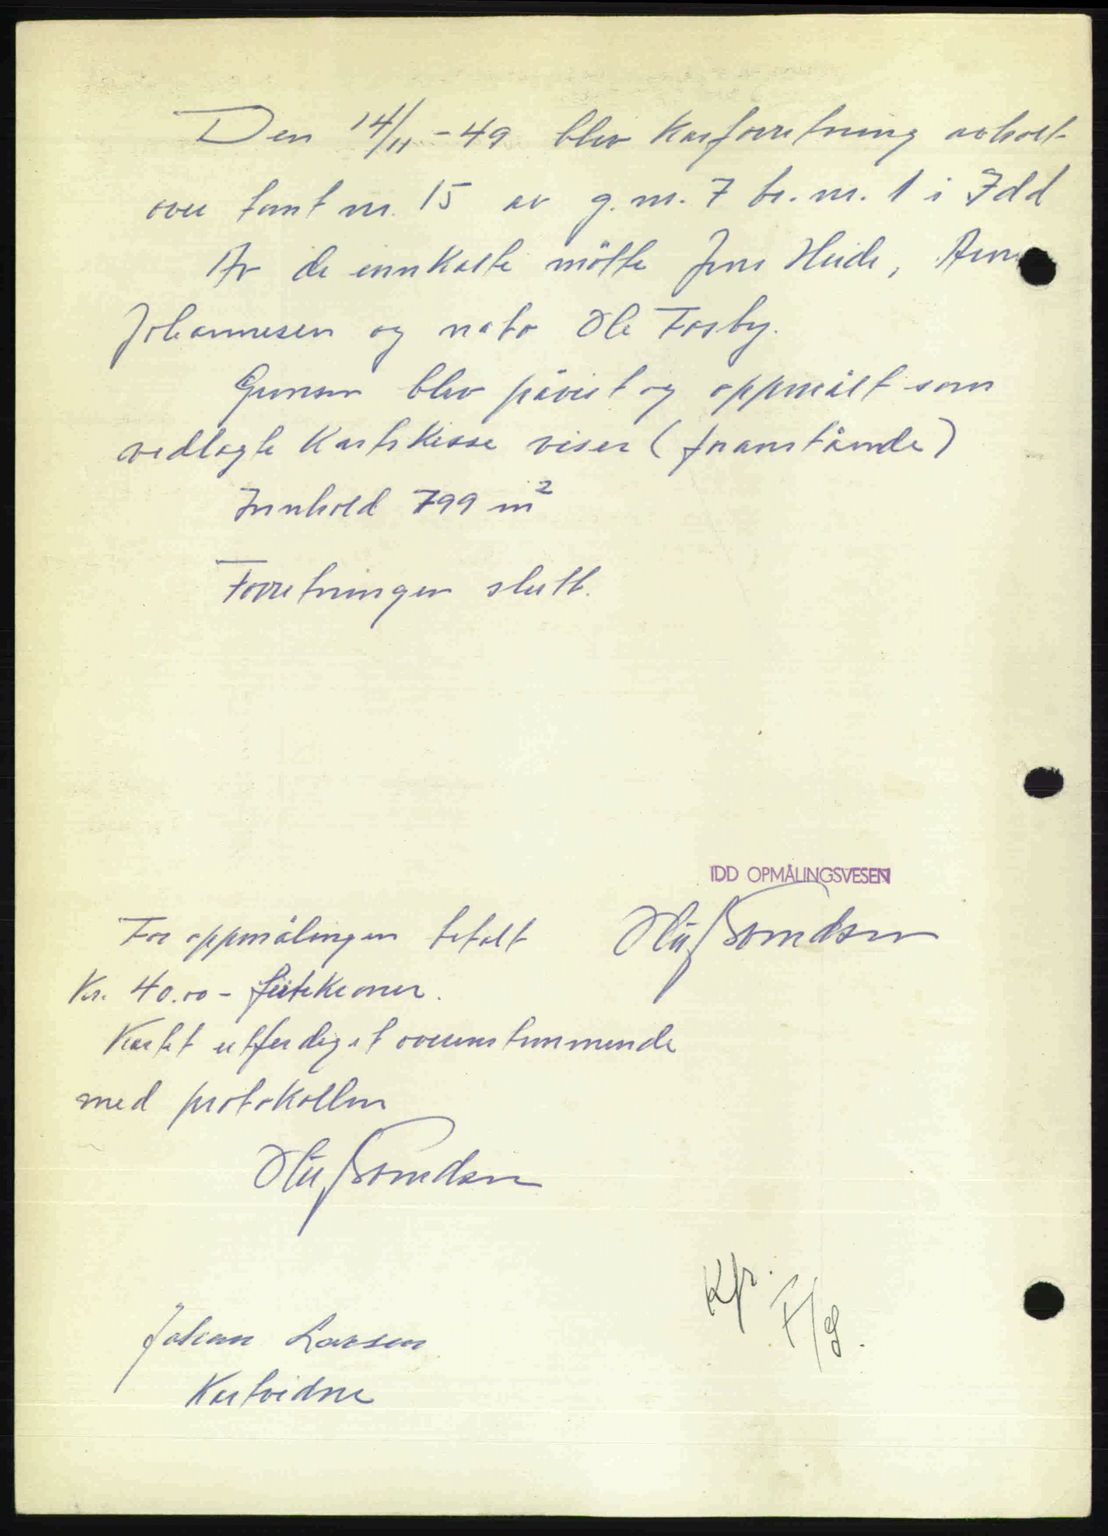 Den 14/11 - 49 blev Kartforretning avholt
over tomt nr. 15 av g. nr. 7 br. nr. 1 i Idd
Av de innkalte mötte Jens Heide, Arne
Johannesen og nabo Ole Fosby.
Grensen blev påvist og oppmålt som
vedlagte Kartskisse viser (foranstående)
Innhold 799 m²
Forretningen slutt.
IDD OPMÅLINGSVESEN
For oppmålingen betalt
Kr. 40.00 - førtikroner.
Kartet utferdiget overenstemmende
med protokollen
Johan Larsen
Kartvidne
Kfr. F/g.